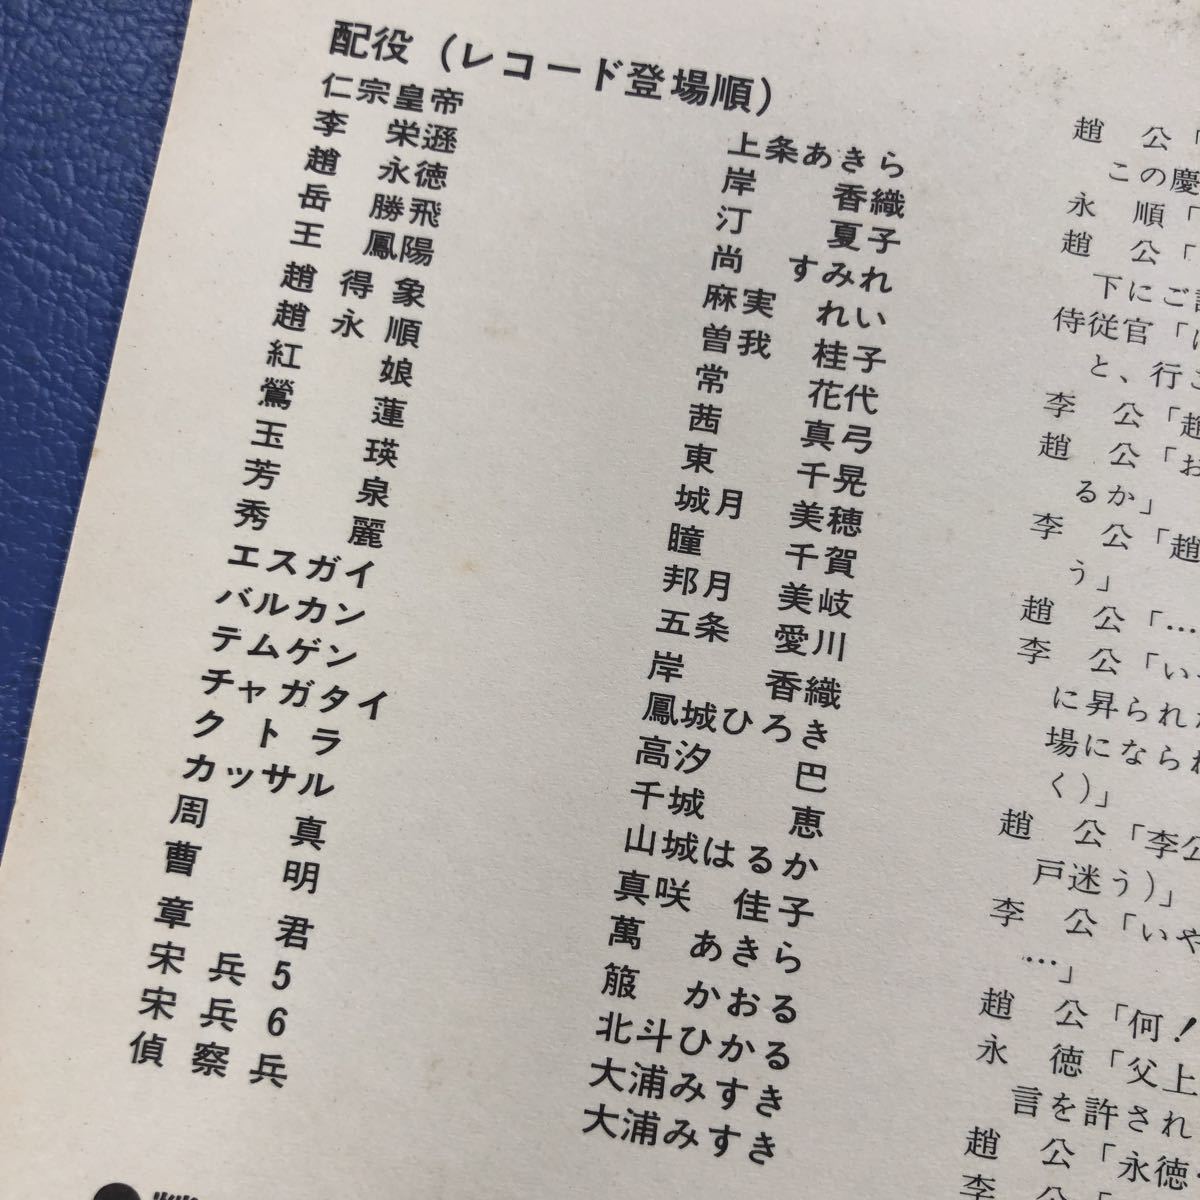 配役（レコード登場順）
仁宗皇帝 上条あきら
李栄遜 岸香織
趙永徳 汀夏子
岳勝飛 尚すみれ
王鳳陽 麻実れい
趙得象 曽我桂子
趙永順 常花代
紅娘 茜真弓
鶯蓮 東千晃
玉瑛 城月美穂
芳泉 瞳千賀
秀麗 邦月美岐
エスガイ 五条愛川
バルカン 岸香織
テムゲン 鳳城ひろき
チャガタイ 高汐巴
クトラ 千城恵
カッサル 山城はるか
周真 真咲佳子
曹明 萬あきら
章君 箙かおる
宋兵5 北斗ひかる
宋兵6 大浦みすき
偵察兵 大浦みすき
趙公「
この慶
永順「
趙公「
下にご
侍従官「
と、行
李公「趙
趙公「お
るか」
李公「趙
う」
趙公「…
李公「い
に昇られ
場になられ
く)」
趙公「李公
戸迷う)」
李公「いや
…」
趙公「何！
永徳「父上
言を許され
趙公「永徳
李公「